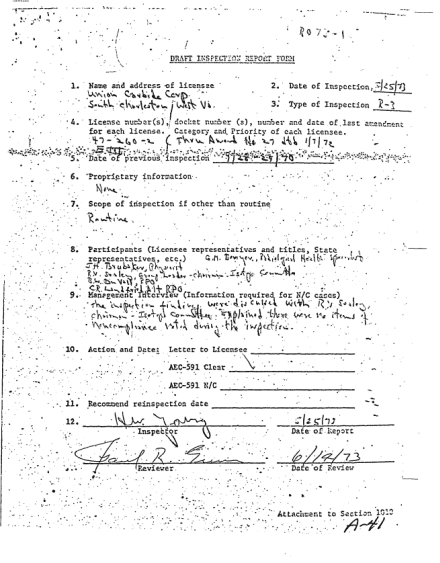 R073-1
DRAFT INSPECTION REPORT FORM
1. Name and address of licensee
Union Carbide Corp.
South Charleston, West Va.
2. Date of Inspection 5/25/73
3. Type of Inspection R-3
4. License number(s), docket number (s), number and date of last amendment
for each license. Category and Priority of each licensee.
47-260-2 (Thru Amend No 27 dtd 1/7/72
5. Date of previous inspection
6. Proprietary information
None
7. Scope of inspection if other than routine
Routine
8. Participants (Licensee representatives and titles, State
representatives, etc.) G.M. Health
J.H. Brubaker, Physicist
Chairman - Isotope Committee
RPO
9. Management Interview (Information required for N/C cases)
the inspection findings were discussed with R.V.
chairman - Isotope Committee. Explained there were no items of
noncompliance noted during the inspection.
10. Action and Date: Letter to Licensee
AEC-591 Clear
AEC-591 N/C
11. Recommend reinspection date
12.
Inspector
5/25/73
Date of Report
Paul R.
Reviewer
6/14/73
Date of Review
Attachment to Section 1012
A-41